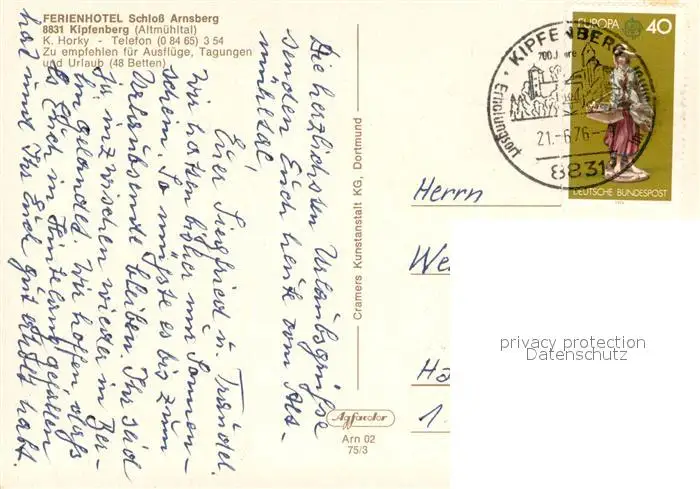 FERIENHOTEL Schloß Arnsberg
8831 Kipfenberg (Altmühltal)
K. Horky - Telefon (0 84 65) 3 54
Zu empfehlen für Ausflüge, Tagungen
und Urlaub (48 Betten)
Die herzlichsten Urlaubsgrüße
senden Euch heute vom Alt-
mühltal,
Euer Siegfried u. Traudel.
Wir hatten bisher nur Sonnen-
schein. So müßte es bis zum
Urlaubsende bleiben. Ihr seid
ja inzwischen wieder in Ber-
lin gelandet. Wir hoffen, daß
es Euch in Hinterlang gefallen
hat und Ihr Euch gut erholt habt.
Cramers Kunstanstalt KG, Dortmund
Agfacolor
Arn 02
75/3
KIPFENBERG
700 Jahre
Erholungsort
21.-6.76-
8831
EUROPA 40
DEUTSCHE BUNDESPOST
Herrn
We
Ha
1
privacy protection
Datenschutz